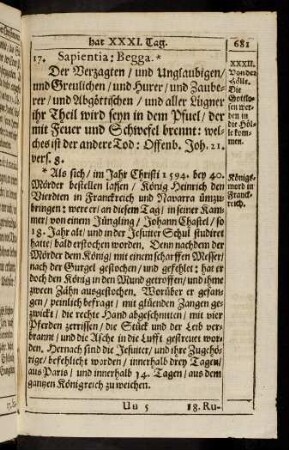 hat XXXI. Tag. 681
17. Sapientia; Begga.*
Der Verzagten / und Unglaubigen /
und Greulichen / und Hurer / und Zaube-
rer / und Abgöttischen / und aller Lügner
ihr Theil wird seyn in dem Pfuel / der
mit Feuer und Schwefel brennt: wel-
ches ist der andere Tod: Offenb. Joh. 21.
vers. 8.
* Als sich / im Jahr Christi 1594. bey 40.
Mörder bestellen lassen / König Heinrich den
Vierdten in Franckreich und Navarra ümzu-
bringen: wer er / an diesem Tag / in seiner Kam-
mer / von einem Jüngling / Johann Chastel / so
18. Jahr alt / und in der Jesuiter Schul studiret
hatte / bald erstochen worden. Denn nachdem der
Mörder dem König / mit einem scharffen Messer /
nach der Gurgel gestochen / und gefehlet; hat er
doch den König in den Mund getroffen / und ihme
zween Zähn ausgestochen. Worüber er gefan-
gen / peinlich befragt / mit glüenden Zangen ge-
zwickt / die rechte Hand abgeschnitten / mit vier
Pferden zerrissen / die Stück und der Leib ver-
brannt / und die Asche in die Lufft gestreuet wor-
den. Hernach sind die Jesuiter / und ihre Zugehö-
rige / befehlicht worden / innerhalb drey Tagen /
aus Paris / und innerhalb 14. Tagen / aus dem
gantzen Königreich zu weichen.
Uu 5 18. Ru-
XXXII.
Von der
Hölle.
Die
Gottlo-
sen wer-
den in
die Höl-
le kom-
men.
Königs-
mord in
Franck-
reich.